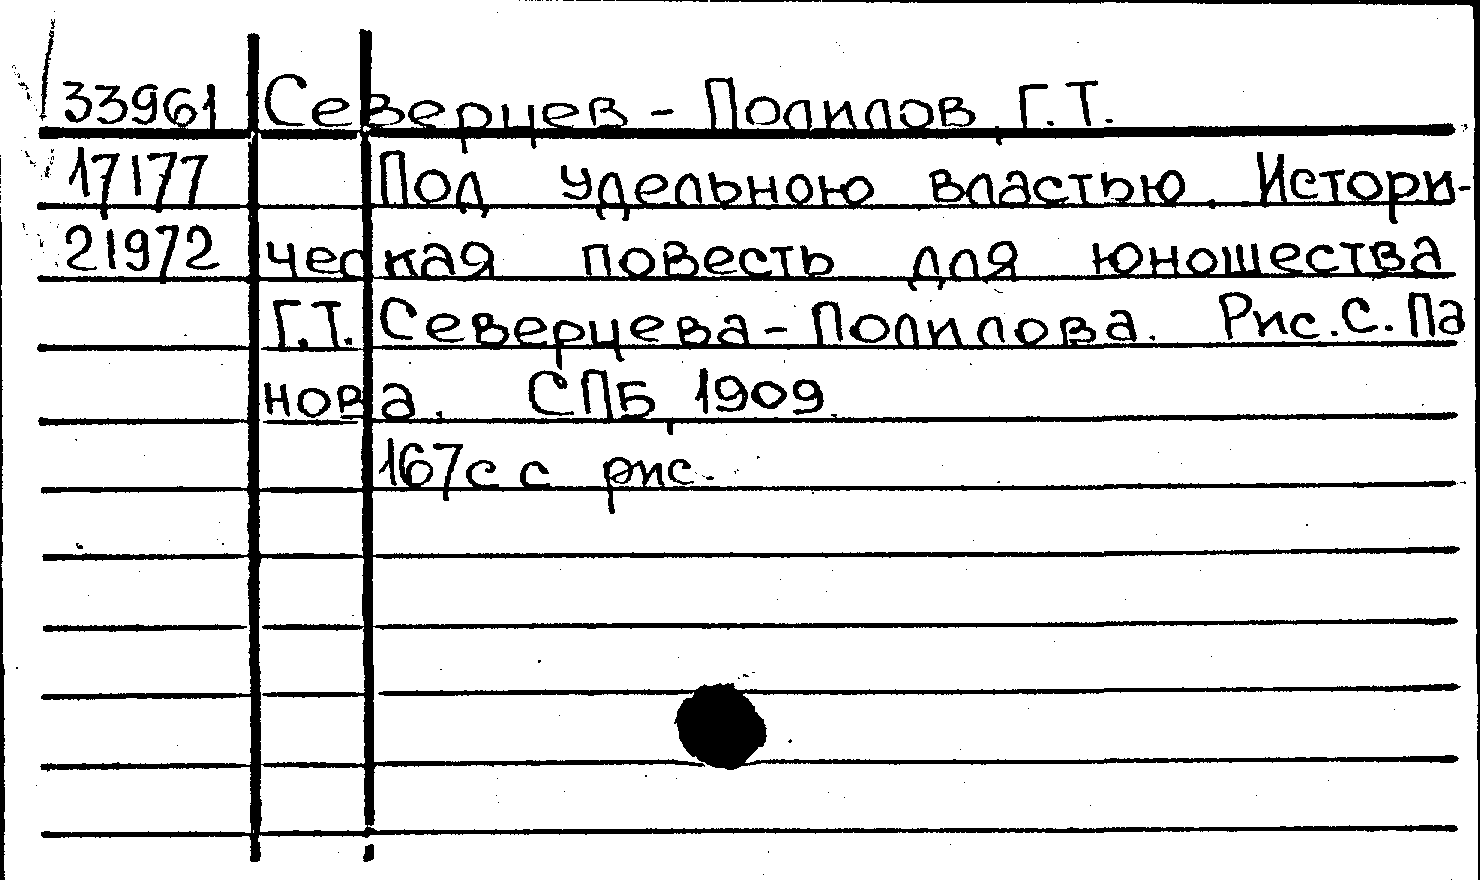 33961 Северцев - Полилов, Г.Т.
17177 Под удельною властью. Истори-
21972 ческая повесть для юношества
Г.Т. Северцева - Полилова. Рис. С. Па
нова. СПБ, 1909
167с с рис.